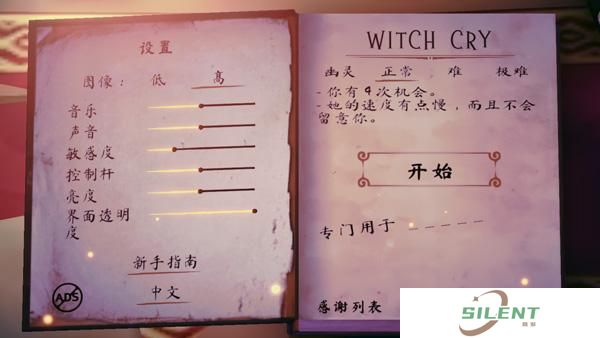 设置
图像： 低 高
音乐
声音
敏感度
控制杆
亮度
界面透明
度
新手指南
中文
ADS
WITCH CRY
幽灵 正常 难 极难
- 你有4次机会。
- 她的速度有点慢，而且不会
留意你。
开始
专门用于 _ _ _ _ _
感谢列表
SILENT